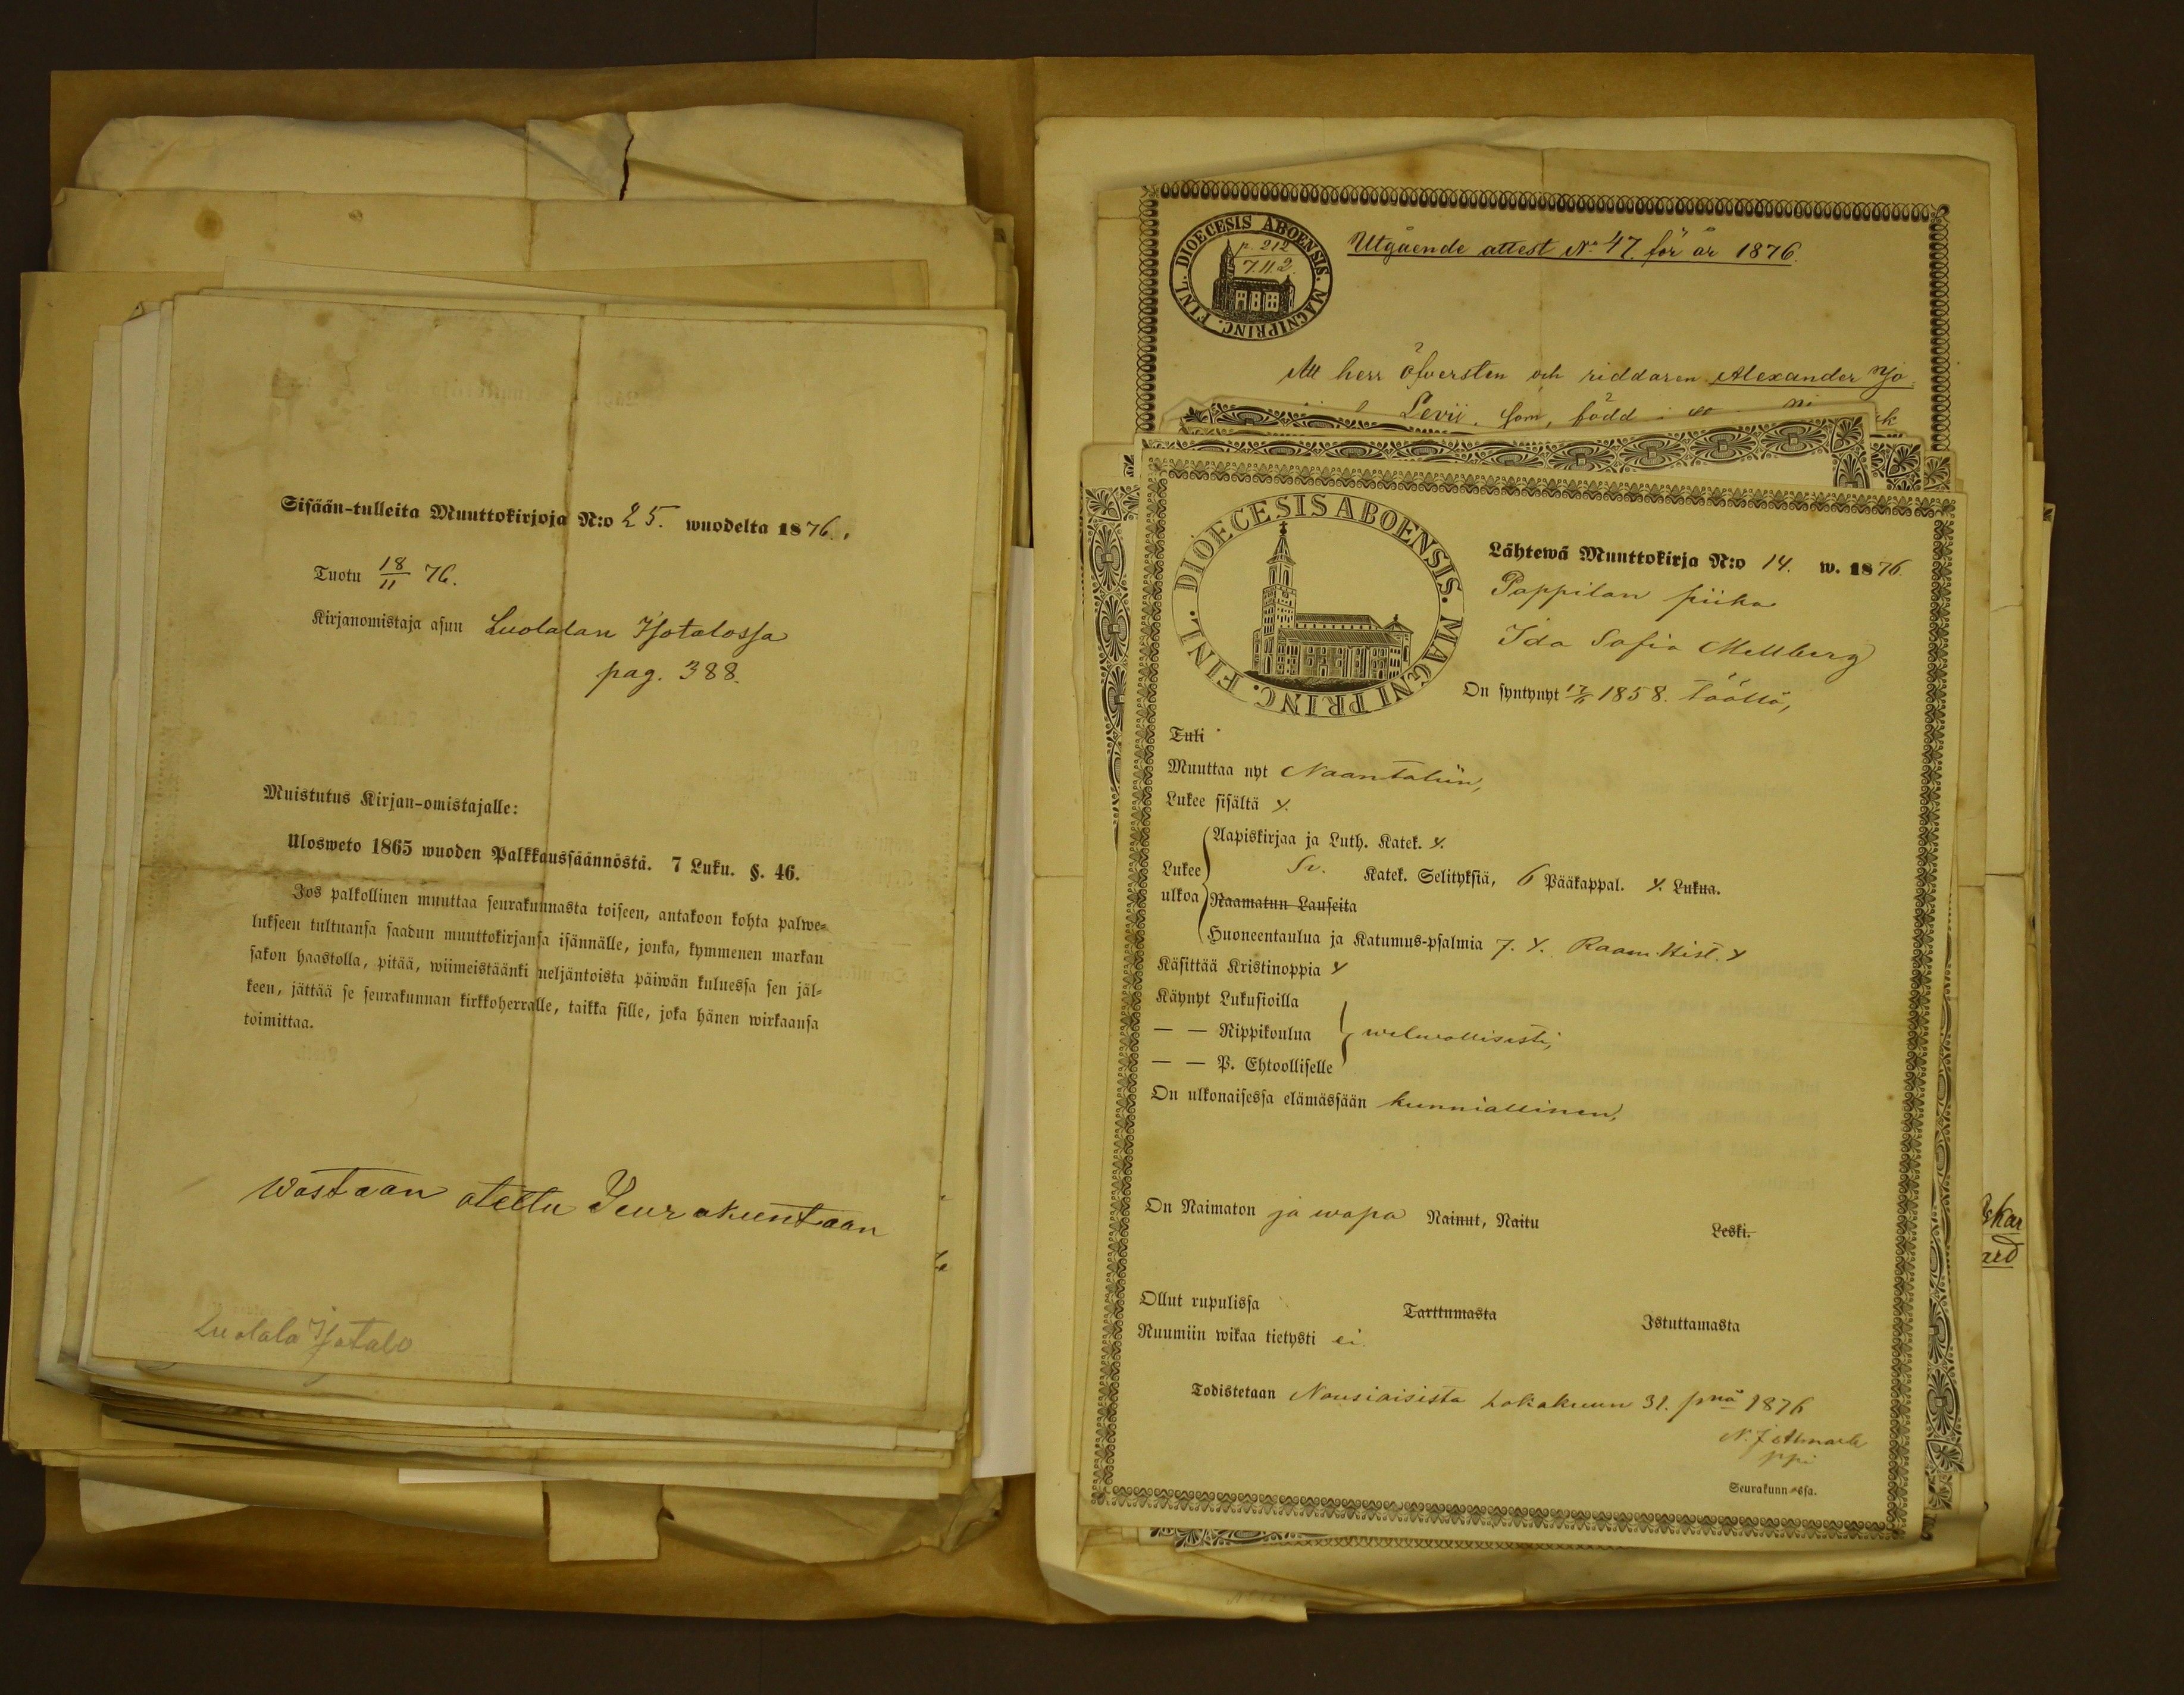 Sisään-tulleita Muuttokirjoja N:o 25. wuodelta 1876.
Tuotu 18/11 76.
Kirjanomistaja asuu Luolalan Isotalossa
pag. 388.
Muistutus Kirjan-omistajalle:
Ulosweto 1865 wuoden Palkkaussäännöstä. 7 Luku. §. 46.
Jos palkollinen muuttaa seurakunnasta toiseen, antakoon kohta palwe=
lukseen tultuansa saadun muuttokirjansa isännälle, jonka, kymmenen markan
sakon haastolla, pitää, wiimeistäänki neljäntoista päiwän kuluessa sen jäl=
keen, jättää se seurakunnan kirkkoherralle, taikka sille, joka hänen wirkaansa
toimittaa.
Wastaan otettu Seurakuntaan
Luolala Isotalo
FINL. DIOECESIS ABOENSIS. MAGNI PRINC.
p. 212
7.11.2.
Utgående attest No 47. för år 1876.
Att herr Öfversten och riddaren Alexander
Levii, som, född
FINL. DIOECESIS ABOENSIS. MAGNI PRINC.
Lähtewä Muuttokirja N:o 14. w. 1876.
Pappilan piika
Ida Sofia Mellberg
On syntynyt 1858.
Tuli
Muuttaa nyt Naantaliin,
Lukee sisältä
Aapiskirjaa ja Luth. Katek.
Lukee ulkoa
Sv. Katek. Selityksiä, 6 Pääkappal. Lukua.
Raamatun Lauseita
Huoneentaulua ja Katumus-psalmia 7. Raam. Hist.
Käsittää Kristinoppia
Käynyt Lukusioilla
— — Rippikoulua
— — P. Ehtoolliselle
On ulkonaisessa elämässään kunniallinen,
On Naimaton ja wapa Nainut, Naitu Leski.
Ollut rupulissa Tarttumasta Istuttamasta
Ruumiin wikaa tietysti ei.
Todistetaan Nousiaisista Lokakuun 31. pnä 1876
Seurakunn ssa.